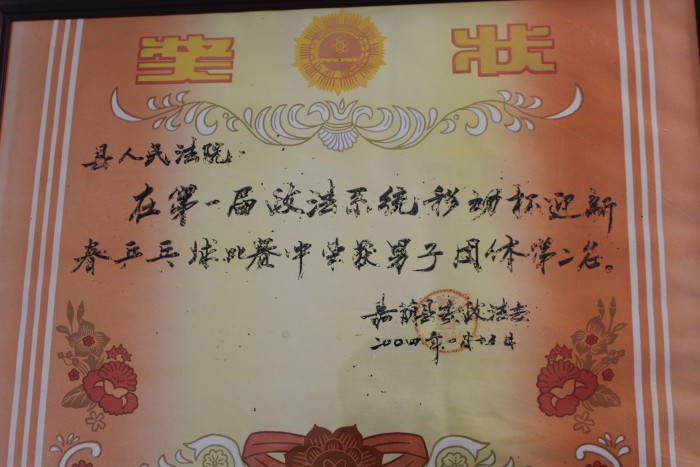 奖状
县人民法院：
在第一届政法系统移动杯迎新
春乒乓球比赛中荣获男子团体第二名。
嘉荫县委政法委
二00四年一月十五日